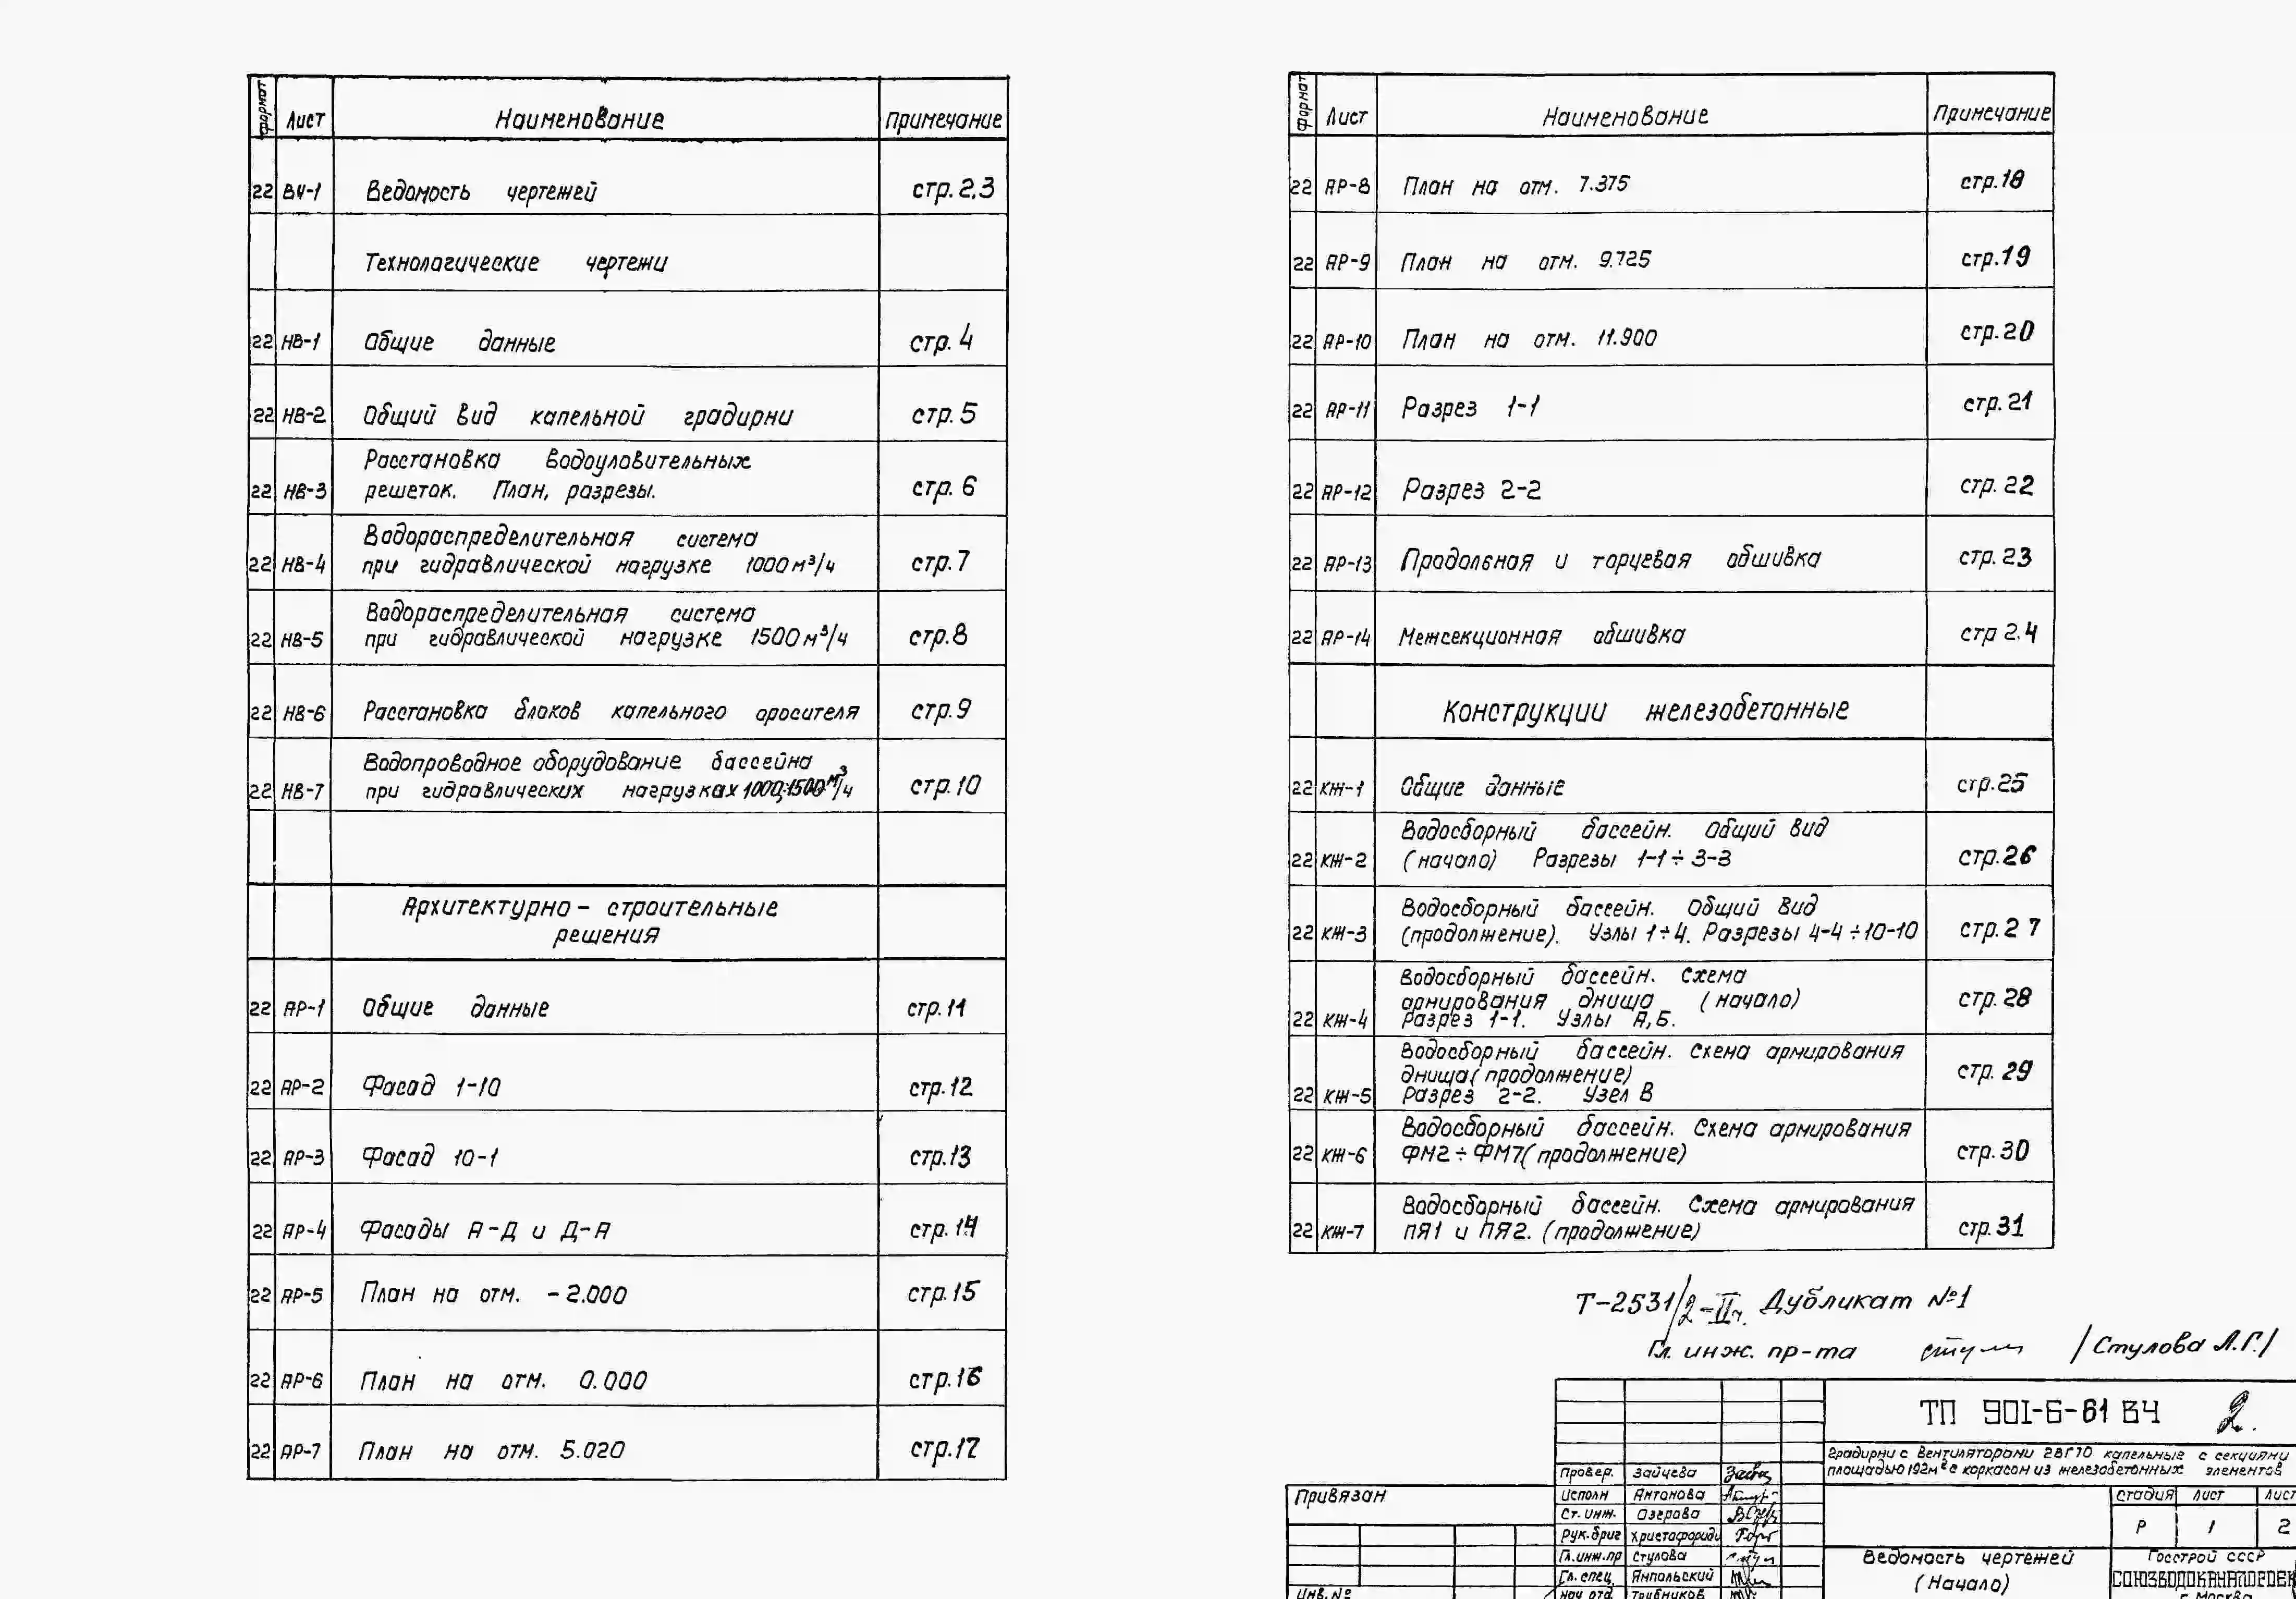 формат Лист Наименование Примечание
22 ВЧ-1 Ведомость чертежей стр. 2,3
Технологические чертежи
22 НВ-1 Общие данные стр. 4
22 НВ-2 Общий вид капельной градирни стр. 5
Расстановка водоуловительных
22 НВ-3 решеток. План, разрезы. стр. 6
Водораспределительная система
22 НВ-4 при гидравлической нагрузке 1000 м³/ч стр. 7
Водораспределительная система
22 НВ-5 при гидравлической нагрузке 1500 м³/ч стр. 8
22 НВ-6 Расстановка блоков капельного оросителя стр. 9
Водопроводное оборудование бассейна
22 НВ-7 при гидравлических нагрузках 1000;1500 м³/ч стр. 10
Архитектурно - строительные
решения
22 АР-1 Общие данные стр. 11
22 АР-2 Фасад 1-10 стр. 12
22 АР-3 Фасад 10-1 стр. 13
22 АР-4 Фасады А-Д и Д-А стр. 14
22 АР-5 План на отм. -2.000 стр. 15
22 АР-6 План на отм. 0.000 стр. 16
22 АР-7 План на отм. 5.020 стр. 17
Формат Лист Наименование Примечание
22 АР-8 План на отм. 7.375 стр. 18
22 АР-9 План на отм. 9.725 стр. 19
22 АР-10 План на отм. 11.900 стр. 20
22 АР-11 Разрез 1-1 стр. 21
22 АР-12 Разрез 2-2 стр. 22
22 АР-13 Продольная и торцевая обшивка стр. 23
22 АР-14 Межсекционная обшивка стр 2.4
Конструкции железобетонные
22 КЖ-1 Общие данные стр. 25
Водосборный бассейн. Общий вид
22 КЖ-2 (начало) Разрезы 1-1÷3-3 стр. 26
Водосборный бассейн. Общий вид
22 КЖ-3 (продолжение). Узлы 1÷4. Разрезы 4-4÷10-10 стр. 27
Водосборный бассейн. Схема
армирования днища (начало) стр. 28
22 КЖ-4 Разрез 1-1. Узлы А,Б.
Водосборный бассейн. Схема армирования
днища (продолжение) стр. 29
22 КЖ-5 Разрез 2-2. Узел В
Водосборный бассейн. Схема армирования
22 КЖ-6 ФМ2÷ФМ7(продолжение) стр. 30
Водосборный бассейн. Схема армирования
22 КЖ-7 ПЯ1 и ПЯ2. (продолжение) стр. 31
Т-2531/2-IIч. Дубликат №1
Гл. инж. пр-та /Стулова Л.Г./
ТП 901-6-61 ВЧ 2.
Градирни с вентиляторами 2ВГ70 капельные с секциями
площадью 192м² с каркасом из железобетонных элементов
Провер. Зайцева
Исполн Антонова
Ст. инж. Озерова
Рук.бриг Христофориди
Гл.инж.пр Стулова
Гл. спец. Ямпольский
Нач. отд. Трубников
Привязан
Инв.№
стадия лист лист
Р 1 2
Ведомость чертежей
(Начало)
Госстрой СССР
СОЮЗВОДОКАНАЛПРОЕК
г. Москва